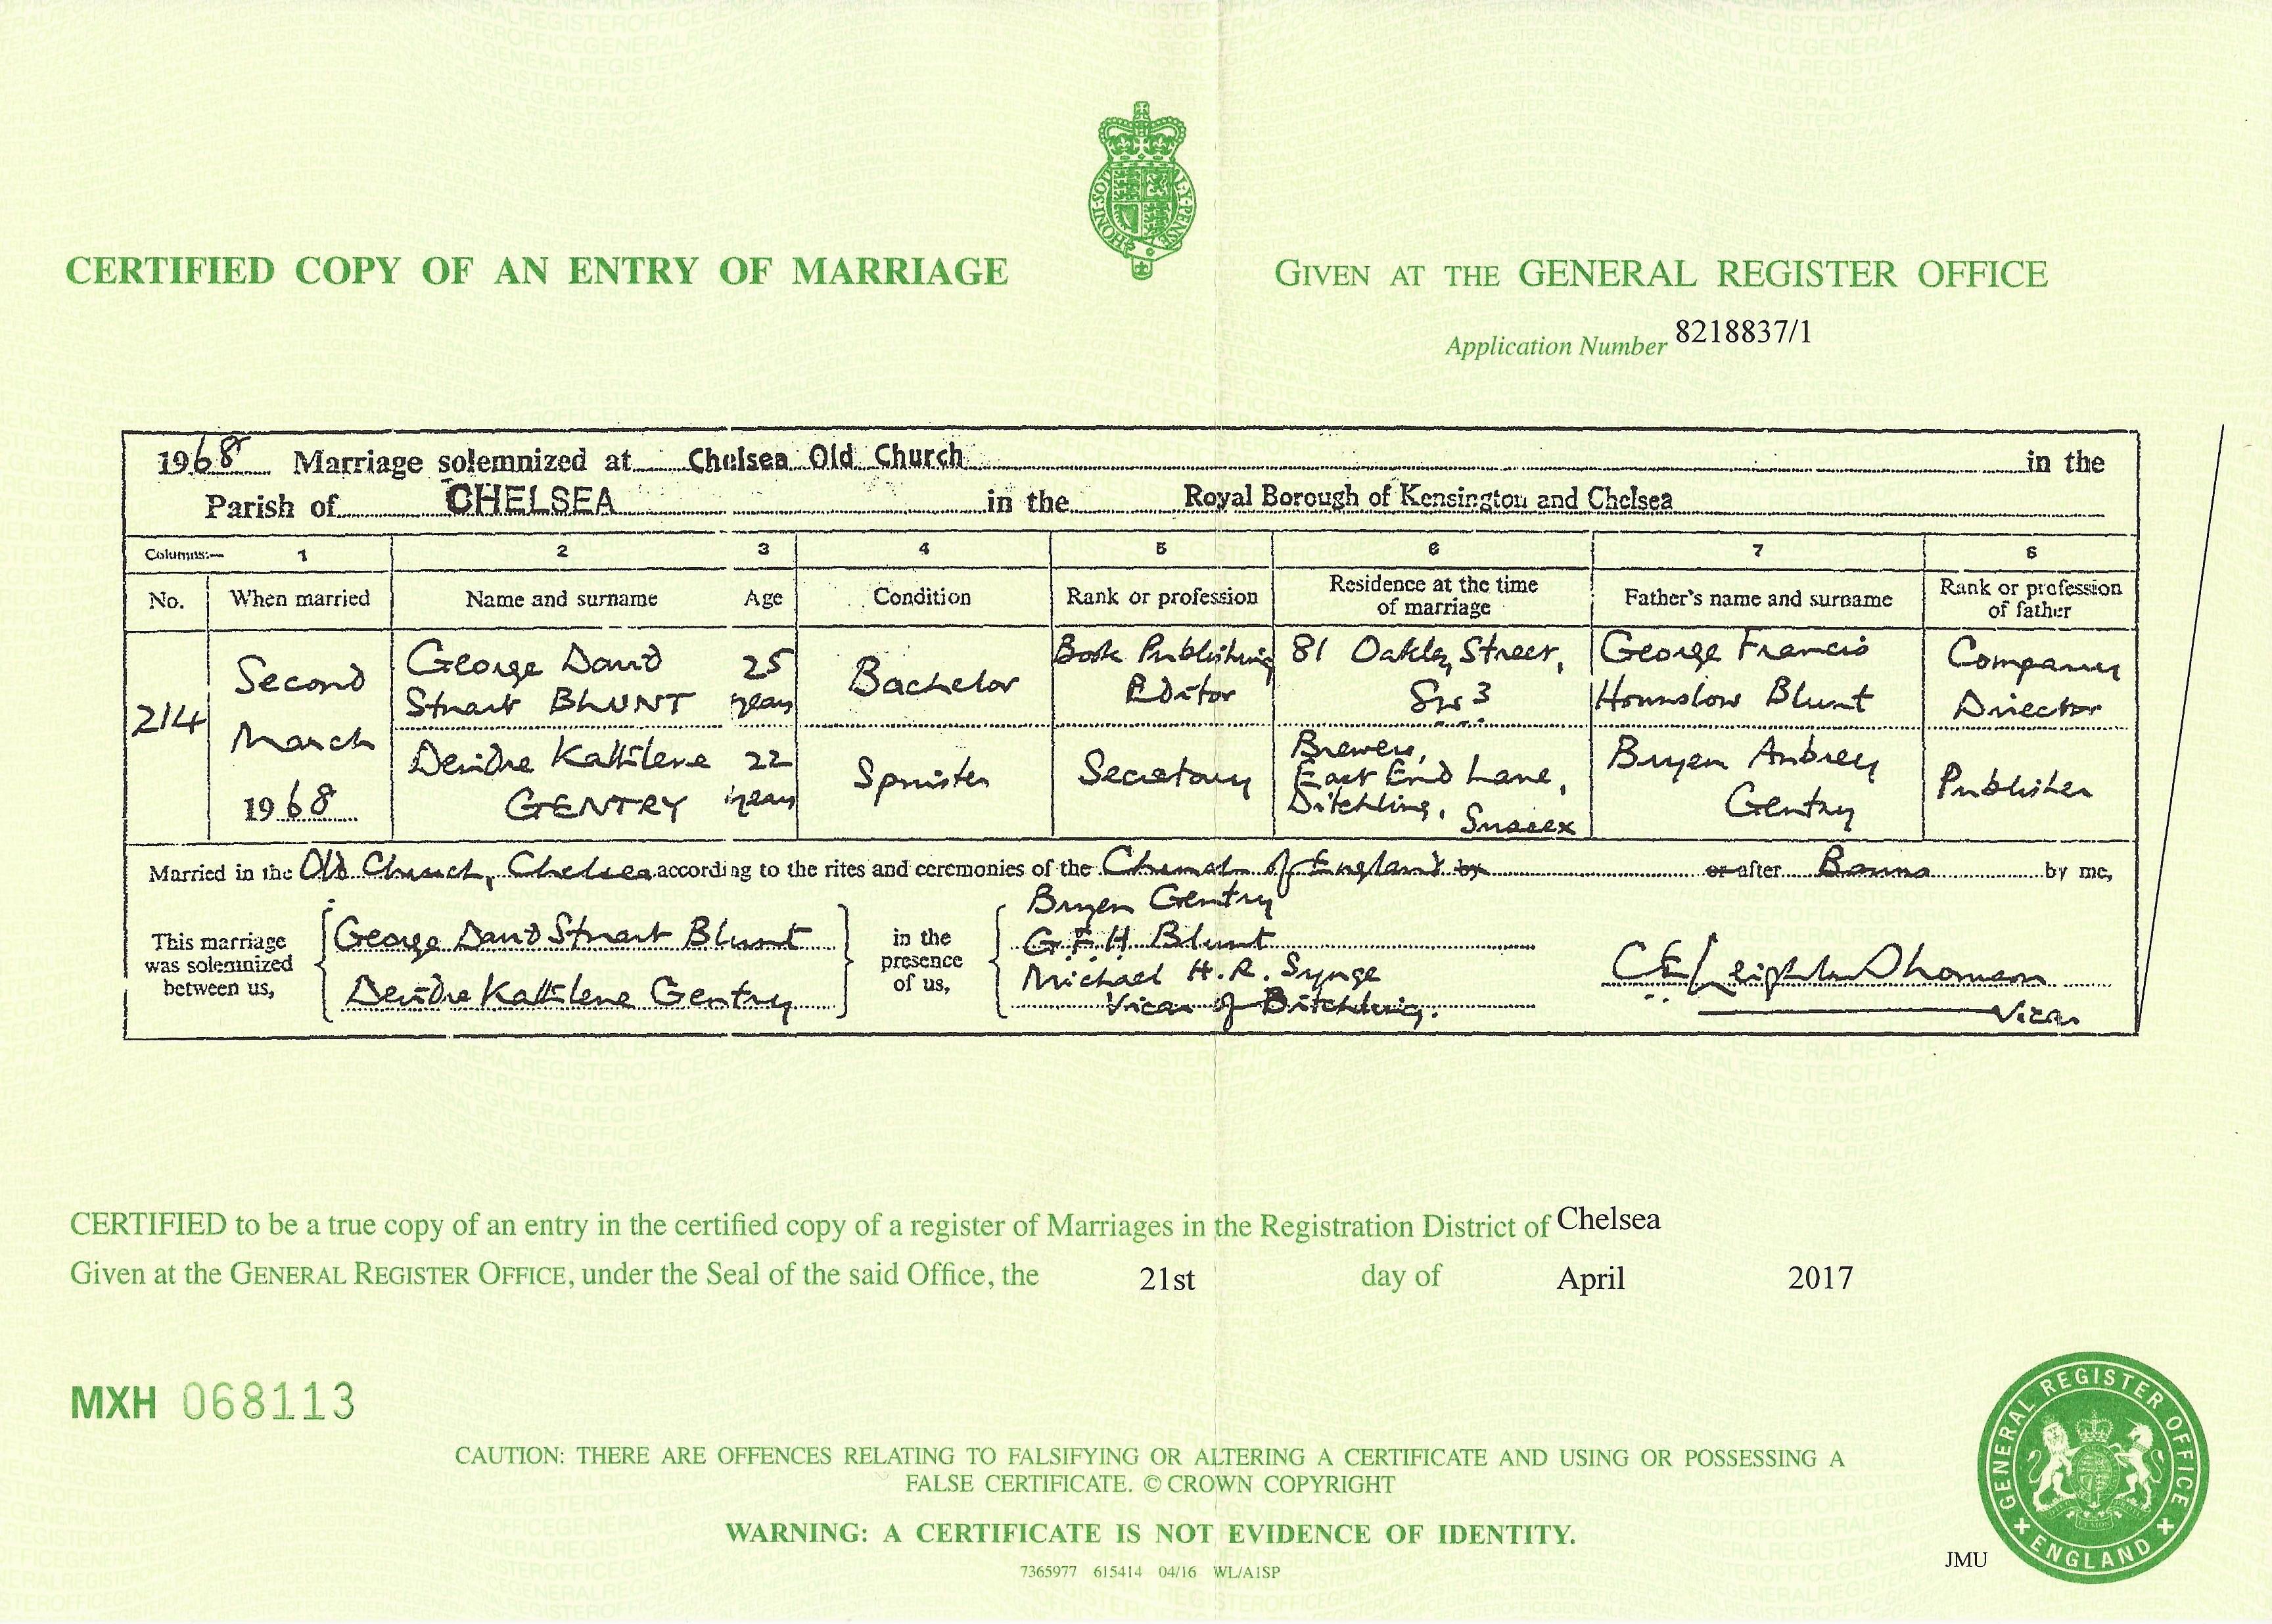 CERTIFIED COPY OF AN ENTRY OF MARRIAGE
GIVEN AT THE GENERAL REGISTER OFFICE
Application Number 8218837/1
1968 Marriage solemnized at Chelsea Old Church in the
Parish of CHELSEA in the Royal Borough of Kensington and Chelsea
Columns:— 1 2 3 4 5 6 7 8
No. When married Name and surname Age Condition Rank or profession Residence at the time of marriage Father's name and surname Rank or profession of father
214
Second
March
1968
George David
Stuart BLUNT
25
years
Bachelor
Book Publishing
Editor
81 Oakley Street,
SW3
George Francis
Hounslow Blunt
Company
Director
Deirdre Kathlene
GENTRY
22
years
Spinster
Secretary
Brewers,
East End Lane,
Ditchling, Sussex
Bryen Aubrey
Gentry
Publisher
Married in the Old Church, Chelsea according to the rites and ceremonies of the Church of England by or after Banns by me,
This marriage
was solemnized
between us,
George David Stuart Blunt
Deirdre Kathlene Gentry
in the
presence
of us,
Bryen Gentry
G.F.H Blunt
Michael H.R. Synge
Vicar of Ditchling.
C E Leighton Thomson
Vicar
CERTIFIED to be a true copy of an entry in the certified copy of a register of Marriages in the Registration District of Chelsea
Given at the GENERAL REGISTER OFFICE, under the Seal of the said Office, the 21st day of April 2017
MXH 068113
CAUTION: THERE ARE OFFENCES RELATING TO FALSIFYING OR ALTERING A CERTIFICATE AND USING OR POSSESSING A
FALSE CERTIFICATE. © CROWN COPYRIGHT
WARNING: A CERTIFICATE IS NOT EVIDENCE OF IDENTITY.
7365977 615414 04/16 WL/A1SP
JMU
GENERAL REGISTER OFFICE
ENGLAND